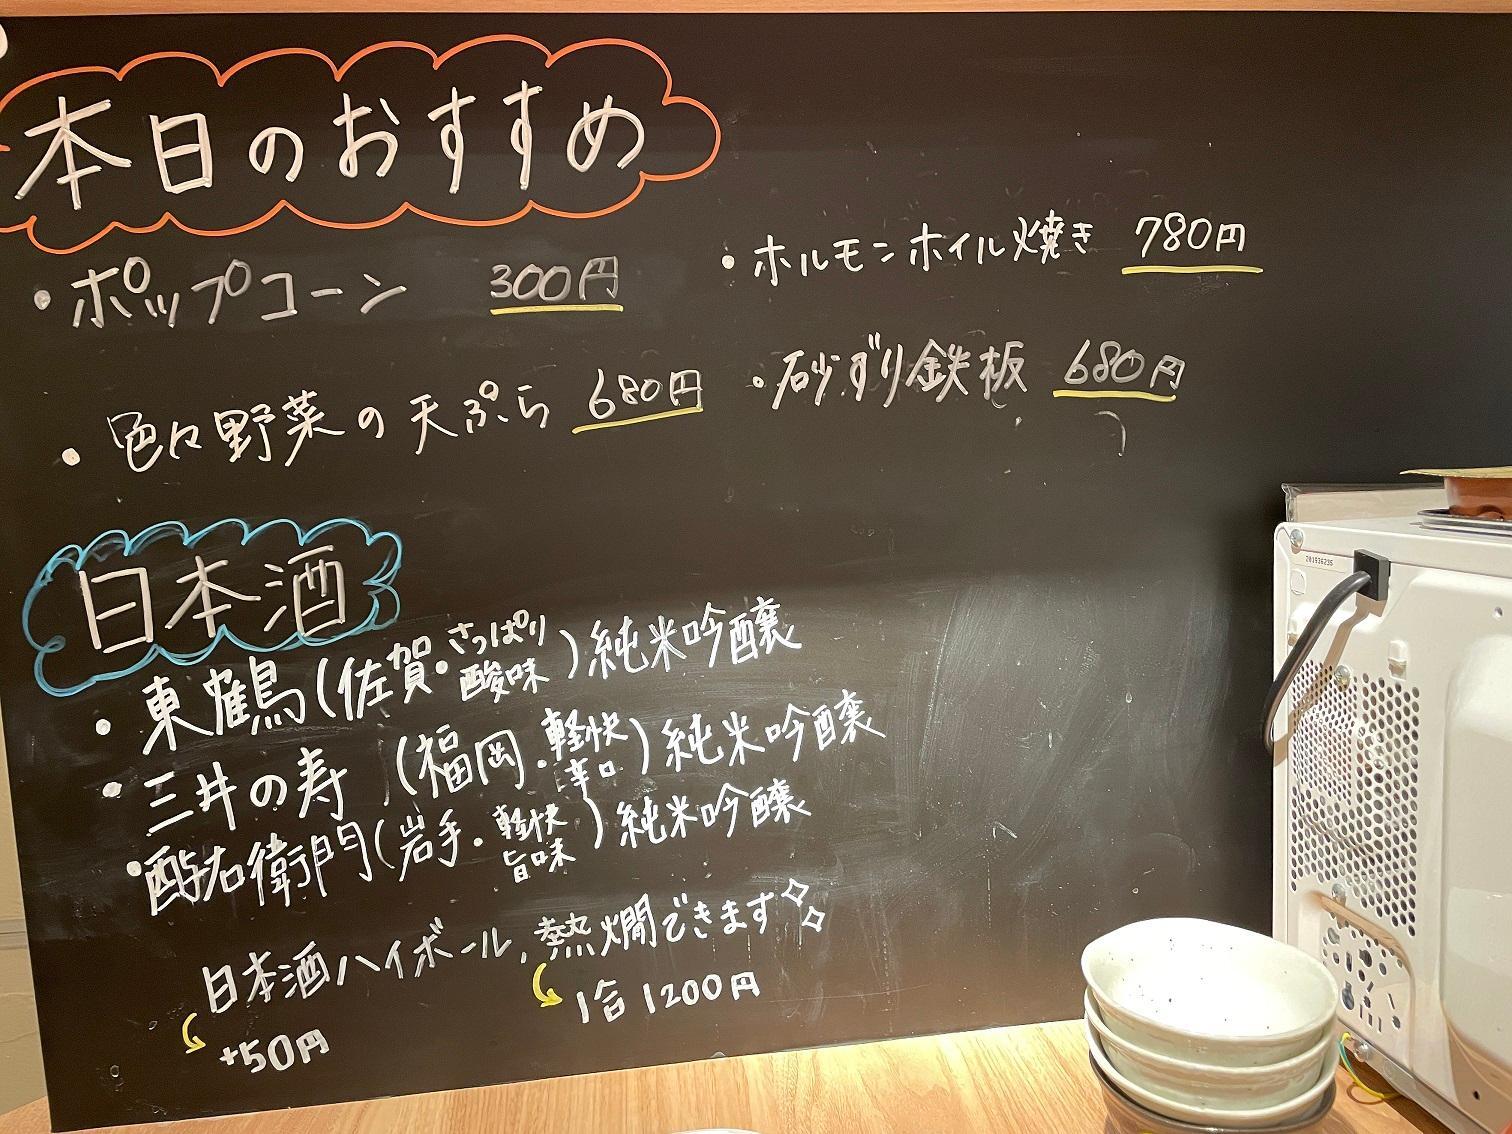 本日のおすすめ
・ポップコーン 300円
・色々野菜の天ぷら 680円
・ホルモンホイル焼き 780円
・砂ずり鉄板 680円
日本酒
・東鶴(佐賀・さっぱり酸味)純米吟醸
・三井の寿(福岡・軽快辛口)純米吟醸
・酉与右衛門(岩手・軽快旨味)純米吟醸
日本酒ハイボール、熱燗できます
+50円
1合1200円
201936235